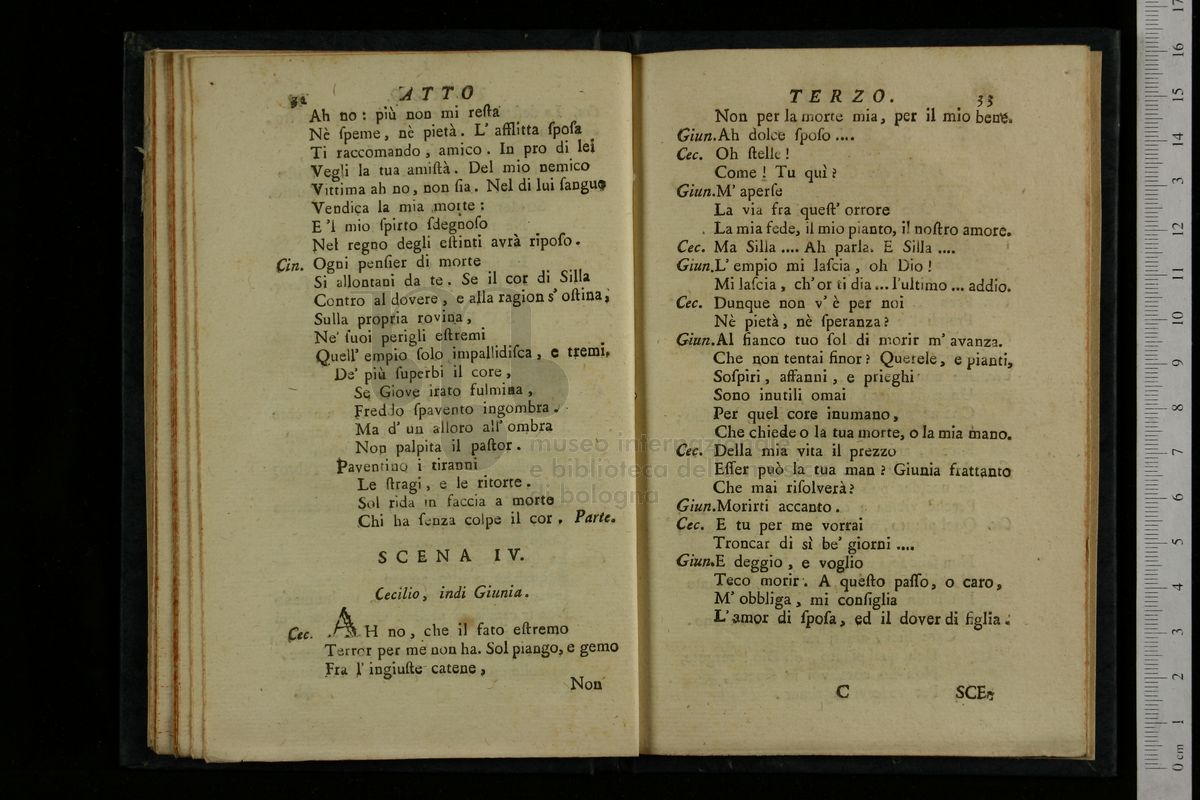 32 ATTO
Ah no: più non mi reſta
Nè ſpeme, nè pietà. L' afflitta ſpoſa
Ti raccomando, amico. In pro di lei
Vegli la tua amiſtà. Del mio nemico
Vittima ah no, non ſia. Nel di lui ſangue
Vendica la mia morte:
E 'l mio ſpirto ſdegnoſo
Nel regno degli eſtinti avrà ripoſo.
Cin. Ogni penſier di morte
Si allontani da te. Se il cor di Silla
Contro al dovere, e alla ragion s' oſtina,
Sulla propria rovina,
Ne' ſuoi perigli eſtremi
Quell' empio ſolo impallidiſca, e tremi.
De' più ſuperbi il core,
Se Giove irato fulmina,
Freddo ſpavento ingombra.
Ma d' un alloro all' ombra
Non palpita il paſtor.
Paventino i tiranni
Le ſtragi, e le ritorte.
Sol rida in faccia a morte
Chi ha ſenza colpe il cor. Parte.
SCENA IV.
Cecilio, indi Giunia.
Cec. AH no, che il fato eſtremo
Terror per me non ha. Sol piango, e gemo
Fra l' ingiuſte catene,
Non
TERZO. 33
Non per la morte mia, per il mio bene.
Giun. Ah dolce ſpoſo ....
Cec. Oh ſtelle!
Come! Tu quì?
Giun. M' aperſe
La via fra queſt' orrore
La mia fede, il mio pianto, il noſtro amore.
Cec. Ma Silla .... Ah parla. E Silla ....
Giun. L' empio mi laſcia, oh Dio!
Mi laſcia, ch' or ti dia ... l'ultimo ... addio.
Cec. Dunque non v' è per noi
Nè pietà, nè ſperanza?
Giun. Al fianco tuo ſol di morir m' avanza.
Che non tentai finor? Querele, e pianti,
Soſpiri, affanni, e prieghi
Sono inutili omai
Per quel core inumano,
Che chiede o la tua morte, o la mia mano.
Cec. Della mia vita il prezzo
Eſſer può la tua man? Giunia frattanto
Che mai riſolverà?
Giun. Morirti accanto.
Cec. E tu per me vorrai
Troncar di sì be' giorni ....
Giun. E deggio, e voglio
Teco morir. A queſto paſſo, o caro,
M' obbliga, mi conſiglia
L' amor di ſpoſa, ed il dover di figlia.
C SCE-
museo internazionale
e biblioteca della musica
di bologna
0 cm 1 2 3 4 5 6 7 8 9 10 11 12 13 14 15 16 17